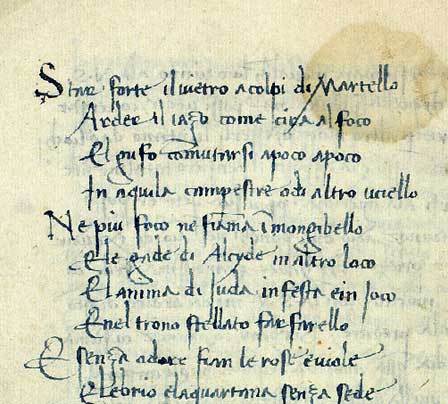 Star forte il vietro a colpi di Martello
Arder il iazo come cira al foco
El gufo comutarsi apoco apoco
In aquila campestre o di altro ucello
Ne piu foco ne fiama i mongibello
E le gride di Alcyde in altro loco
El anima di Juda in festa e in Joco
E nel trono stellato farfarello
E senza odore fian le rose e viole
El ebrio e la quartana senza sede